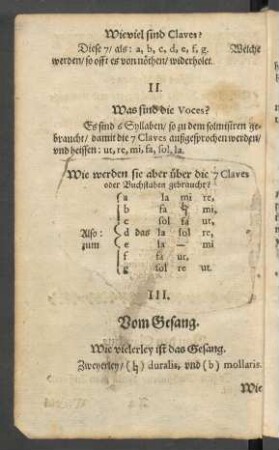 Wieviel sind Claves?
Diese 7/ als: a, b, c, d, e, f, g. Welche
werden/ so offt es von nöthen/ widerholet.
II.
Was sind die Voces?
Es sind 6 Syllaben/ so zu dem solmisiren ge-
braucht/ damit die 7 Claves außgesprochen werden/
vnd heissen: ut, re, mi, fa, sol, la.
Wie werden sie aber über die 7 Claves
oder Buchstaben gebraucht?
a la mi re,
b fa ♮ mi,
c sol fa ut,
Also: d das la sol re,
zum e la – mi
f fa ut,
g sol re ut.
III.
Vom Gesang.
Wie vielerley ist das Gesang.
Zweyerley/ (♮) duralis, vnd (b) mollaris.
Wie